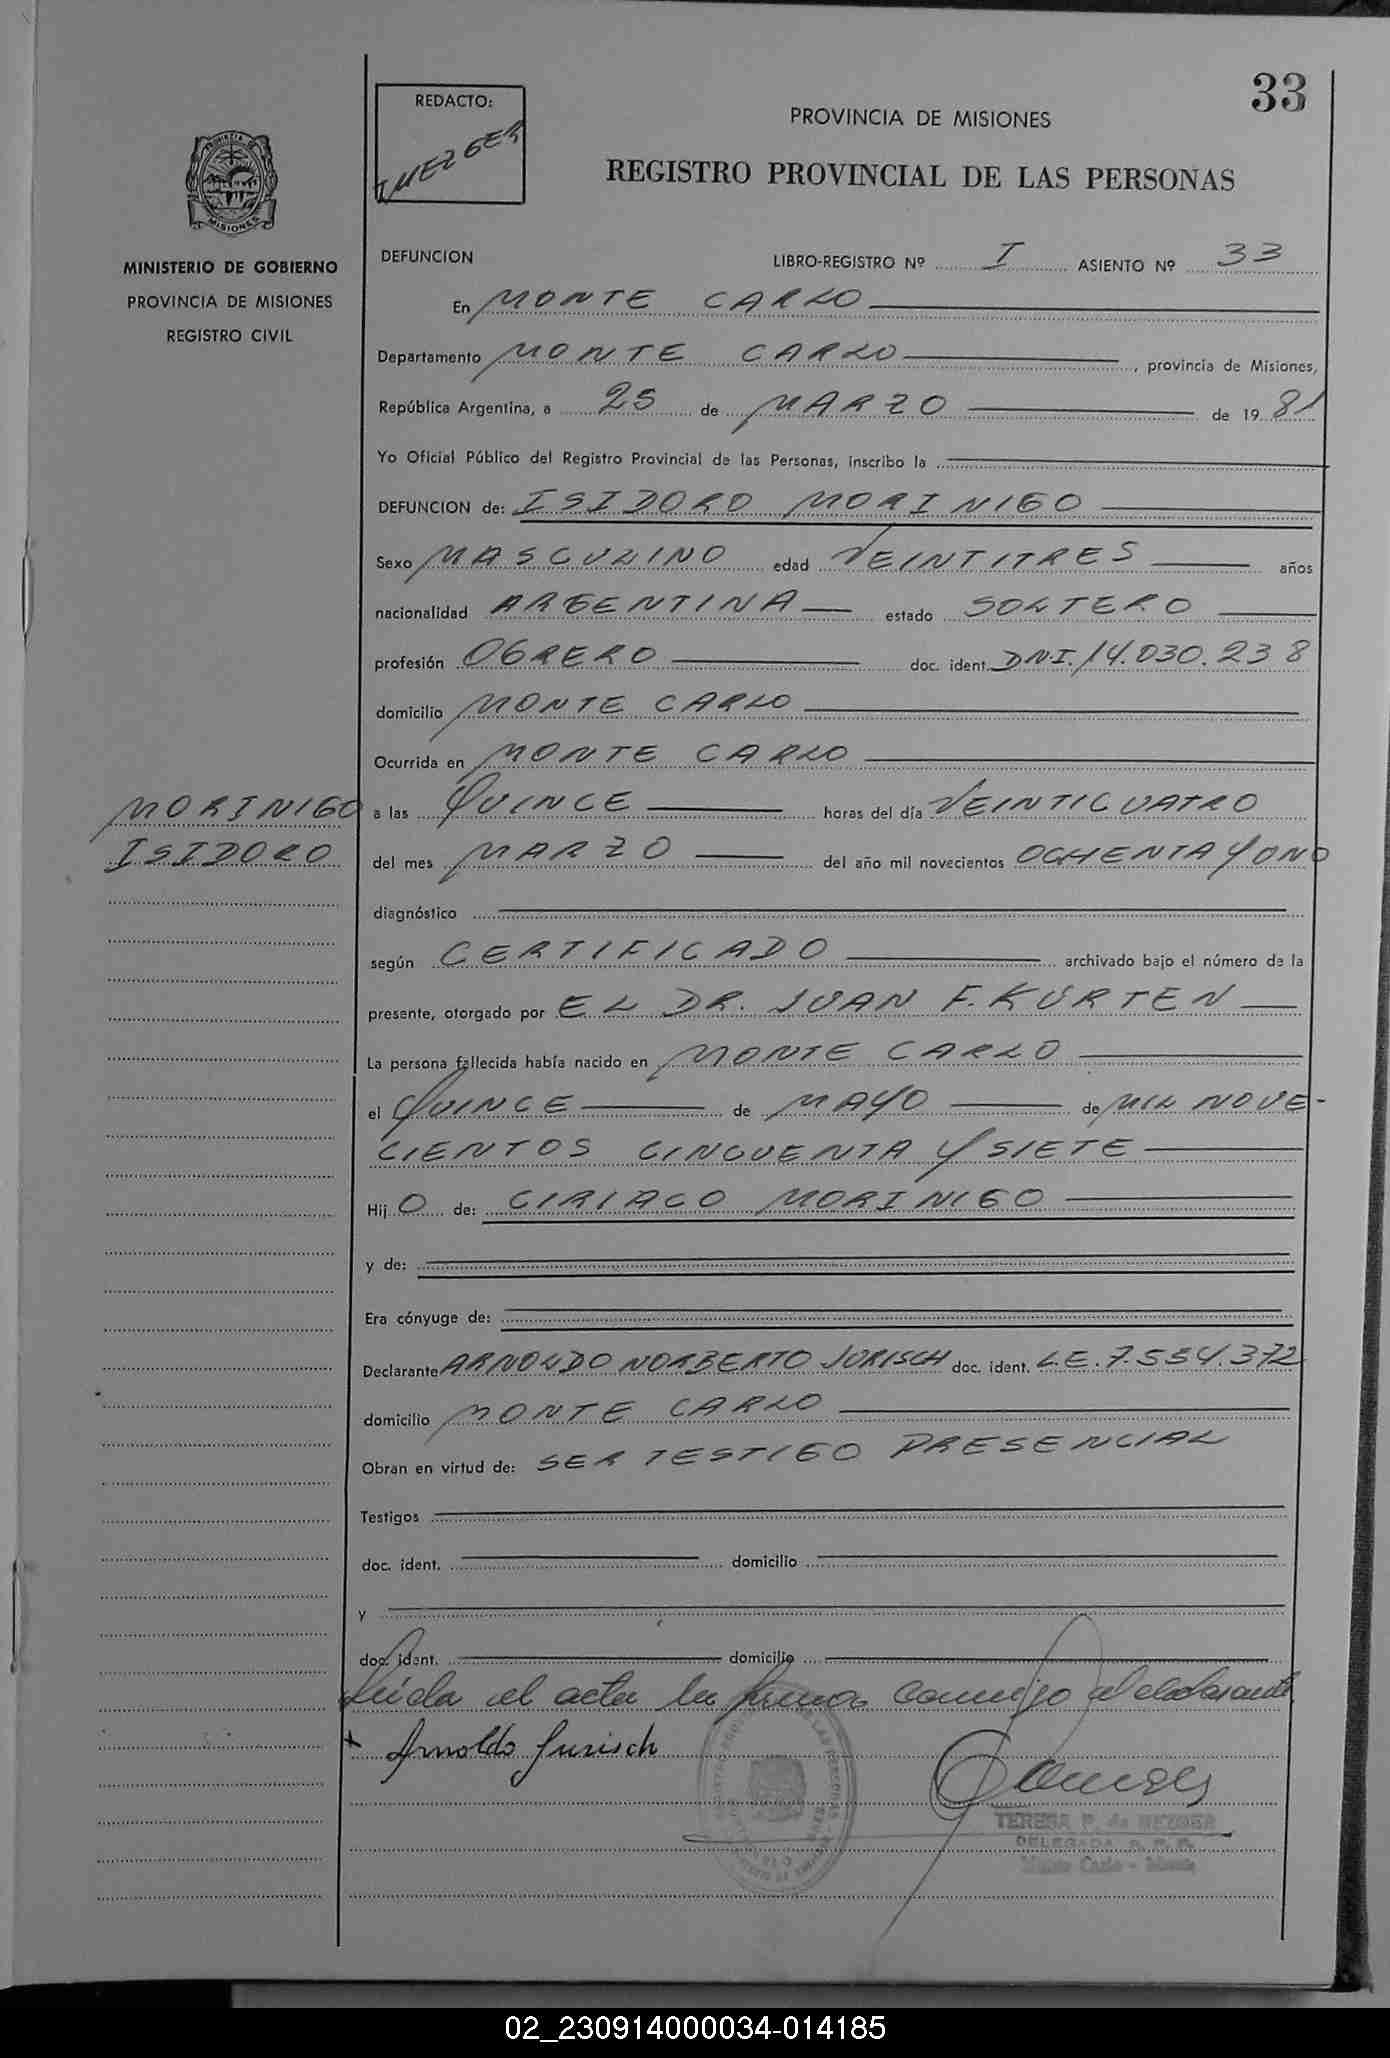 33
REDACTO:
MEZGER
PROVINCIA DE MISIONES
REGISTRO PROVINCIAL DE LAS PERSONAS
PROVINCIA DE
MISIONES
MINISTERIO DE GOBIERNO
PROVINCIA DE MISIONES
REGISTRO CIVIL
DEFUNCION LIBRO-REGISTRO Nº I ASIENTO Nº 33
En MONTE CARLO
Departamento MONTE CARLO, provincia de Misiones,
República Argentina, a 25 de MARZO de 1981
Yo Oficial Público del Registro Provincial de las Personas, inscribo la
DEFUNCION de: ISIDORO MORINIGO
Sexo MASCULINO edad VEINTITRES años
nacionalidad ARGENTINA estado SOLTERO
profesión OBRERO doc. ident. DNI. 14.030.238
domicilio MONTE CARLO
Ocurrida en MONTE CARLO
MORINIGO
ISIDORO
a las QUINCE horas del día VEINTICUATRO
del mes MARZO del año mil novecientos OCHENTA Y UNO
diagnóstico
según CERTIFICADO archivado bajo el número de la
presente, otorgado por EL DR. JUAN F. KURTEN
La persona fallecida había nacido en MONTE CARLO
el QUINCE de MAYO de MIL NOVE-
CIENTOS CINCUENTA Y SIETE
Hij O de: CIRIACO MORINIGO
y de:
Era cónyuge de:
Declarante ARNOLDO NORBERTO JURISCH doc. ident. L.E. 7.554.372
domicilio MONTE CARLO
Obran en virtud de: SER TESTIGO PRESENCIAL
Testigos
doc. ident. domicilio
y
doc. ident. domicilio
Leida el acta la firma conmigo el declarante
x Arnoldo Jurisch
TERESA P. de MEZGER
DELEGADA R. P. P.
Monte Carlo - Mnes.
02_230914000034-014185